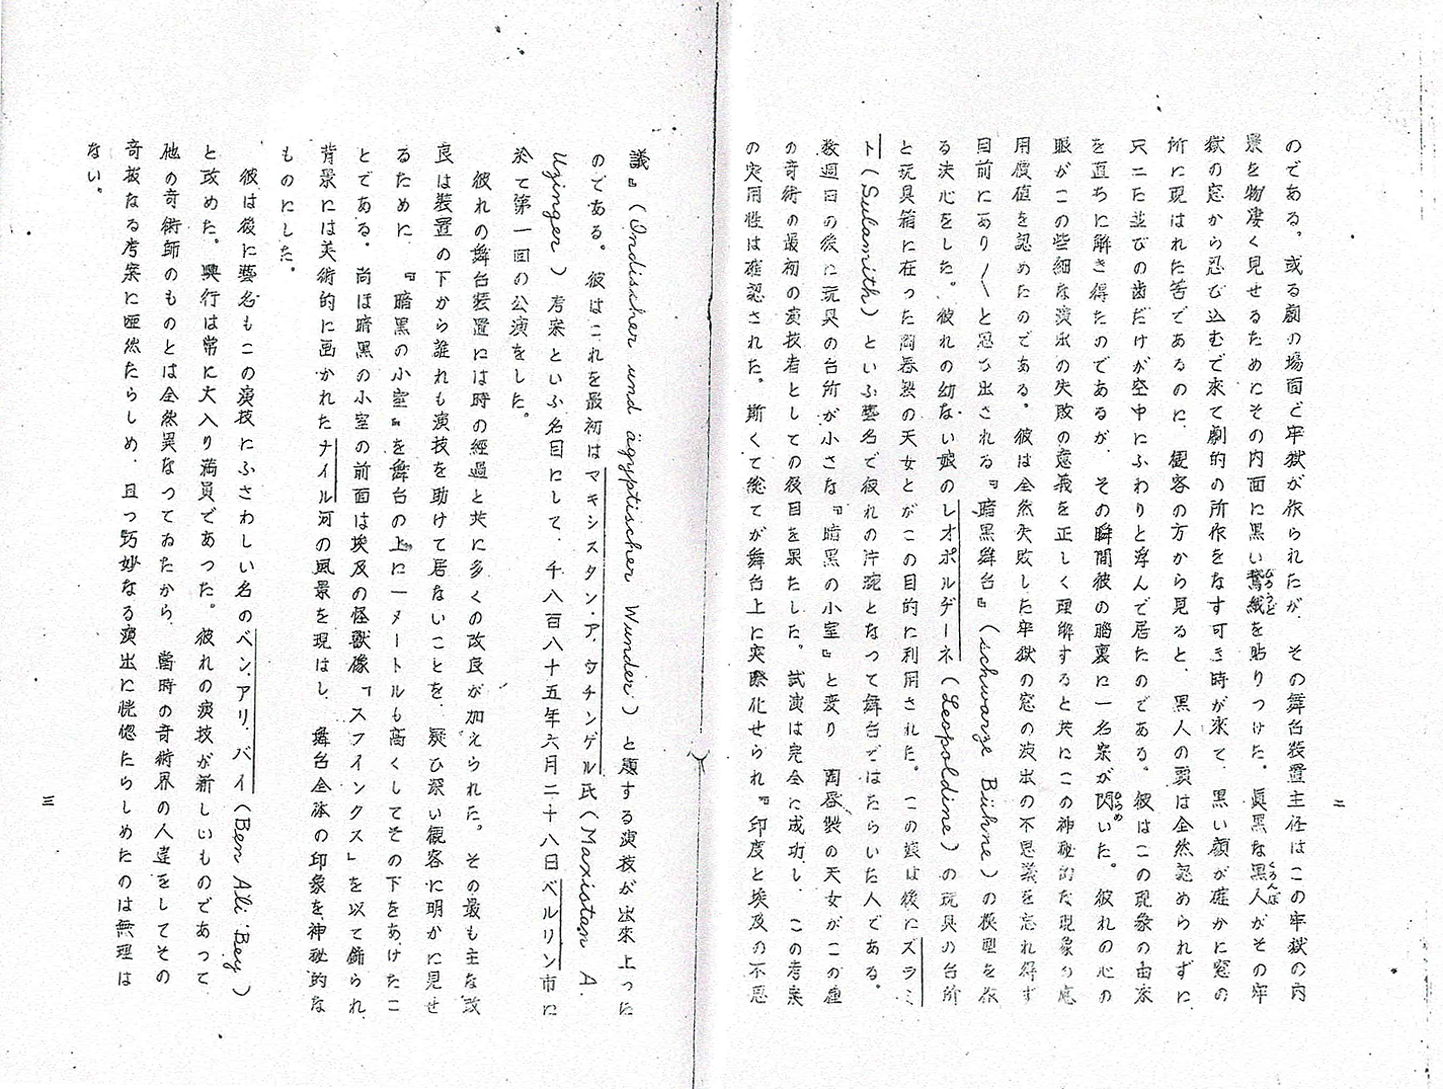 二
のである。或る劇の場面ど牢獄が作られたが、その舞台装置主任はこの牢獄の内
景を物凄く見せるためにその内面に黒い鵞絨を貼りつけた。眞黒な黒人がその牢
びろうど
くろんぼ
獄の窓から忍び込むで来て劇的の所作をなす可き時が来て、黒い顔が確かに窓の
所に現はれた筈であるのに、観客の方から見ると、黒人の頭は全然認められずに
只二た並びの歯だけが空中にふわりと浮んで居たのである。彼はこの現象の由来
を直ちに解き得たのであるが、その瞬間彼の脳裏に一名案が閃いた。彼れの心の
ひらめ
眼がこの些細な演出の失敗の意義を正しく理解すると共にこの神秘的な現象の應
用價値を認めたのである。彼は全然失敗した牢獄の窓の演出の不思議を忘れ得ず
目前にあり〳〵と思ひ出される『暗黒舞台』(schwarze Bühne)の模型を作
る決心をした。彼れの幼ない娘のレオポルヂーネ(Leopoldine)の玩具の台所
と玩具箱に在った陶器製の天女とがこの目的に利用された。この娘は後にズラミ
ト(Sulamith)といふ藝名で彼れの片腕となって舞台ではたらいた人である。
数週日の後に玩具の台所が小さな『暗黒の小室』と変り、陶器製の天女がこの種
の奇術の最初の演技者としての役目を果たした。試演は完全に成功し、この考案
の実用性は確認された。斯くて総てが舞台上に実際化せられ『印度と埃及の不思
議』(Indischer und ägyptischer Wunder)と題する演技が出来上った
のである。彼はこれを最初はマキシスタン・ア・ウチンゲル氏(Maxistan A.
Uzinger)考案といふ名目にして、千八百八十五年六月二十八日ベルリン市に
於て第一回の公演をした。
彼れの舞台装置には時の経過と共に多くの改良が加えられた。その最も主な改
良は装置の下から誰れも演技を助けて居ないことを、疑ひ深い観客に明かに見せ
るために、『暗黒の小室』を舞台の上に一メートルも高くしてその下をあけたこ
とである。尚ほ暗黒の小室の前面は埃及の怪獣像「スフインクス」を以て飾られ
背景には美術的に画かれたナイル河の風景を現はし、舞台全体の印象を神秘的な
ものにした。
彼は後に藝名もこの演技にふさわしい名のベン・アリ・バイ(Ben Ali Bey)
と改めた。興行は常に大入り満員であった。彼れの演技が新しいものであって
他の奇術師のものとは全然異なつてゐたから、當時の奇術界の人達をしてその
奇抜なる考案に唖然たらしめ、且つ巧妙なる演出に恍惚たらしめたのは無理は
ない。
三